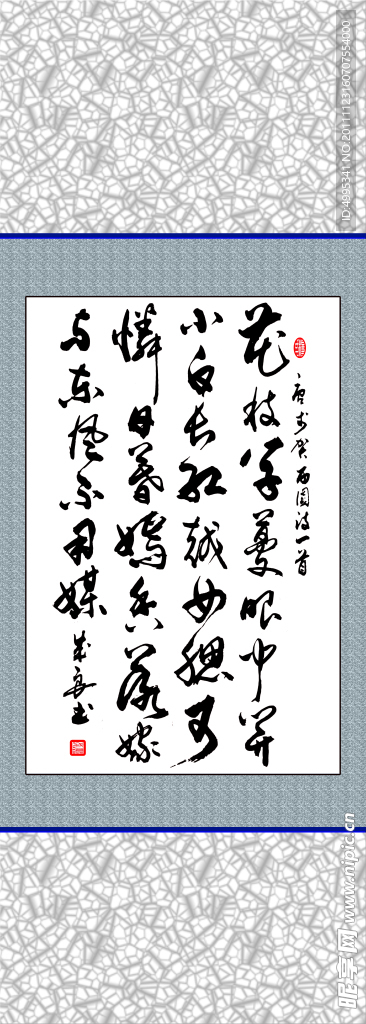 唐李贺南园诗一首
花枝草蔓眼中开
小白长红越女腮可
憐日暮嫣香落嫁
与东风不用媒
ID:4995341 NO:20111123160707554000
昵享网 www.nipic.cn